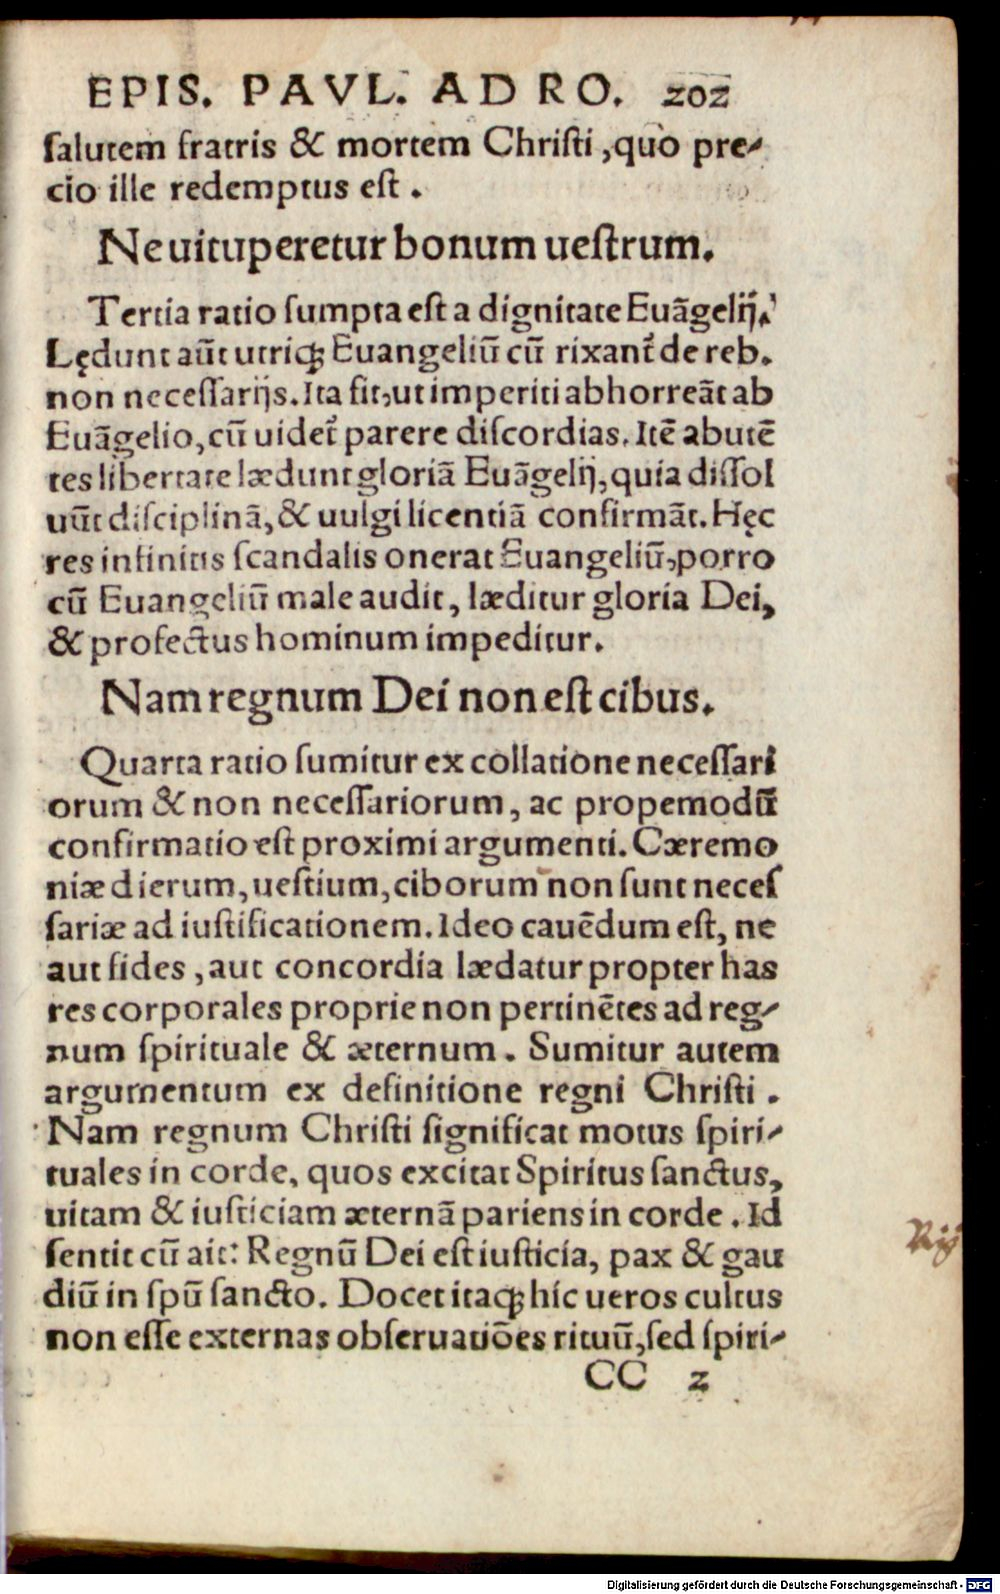 EPIS. PAVL. AD RO. 202
ſalutem fratris & mortem Chriſti, quo pre-
cio ille redemptus eſt.
Ne uituperetur bonum ueſtrum.
Tertia ratio ſumpta eſt a dignitate Euāgelij.
Lędunt aūt utriq; Euangeliū cū rixant᷑ de reb.
non neceſſarijs. Ita fit, ut imperiti abhorreāt ab
Euāgelio, cū uidet᷑ parere diſcordias. Itē abutē
tes libertate lædunt gloriā Euāgelij, quia diſſol
uūt diſciplinā, & uulgi licentiā confirmāt. Hęc
res infinitis ſcandalis onerat Euangeliū, porro
cū Euangeliū male audit, læditur gloria Dei,
& profectus hominum impeditur.
Nam regnum Dei non eſt cibus.
Quarta ratio ſumitur ex collatione neceſſari
orum & non neceſſariorum, ac propemodū
confirmatio eſt proximi argumenti. Cæremo
niæ dierum, ueſtium, ciborum non ſunt neceſ
ſariæ ad iuſtificationem. Ideo cauēdum eſt, ne
aut fides, aut concordia lædatur propter has
res corporales proprie non pertinētes ad reg-
num ſpirituale & æternum. Sumitur autem
argumentum ex definitione regni Chriſti.
Nam regnum Chriſti ſignificat motus ſpiri-
tuales in corde, quos excitat Spiritus ſanctus,
uitam & iuſticiam æternā pariens in corde. Id
ſentit cū ait: Regnū Dei eſt iuſticia, pax & gau
diū in ſpū ſancto. Docet itaq; hic ueros cultus
non eſſe externas obſeruatiōes rituū, ſed ſpiri-
CC 2
Digitalisierung gefördert durch die Deutsche Forschungsgemeinschaft - DFG